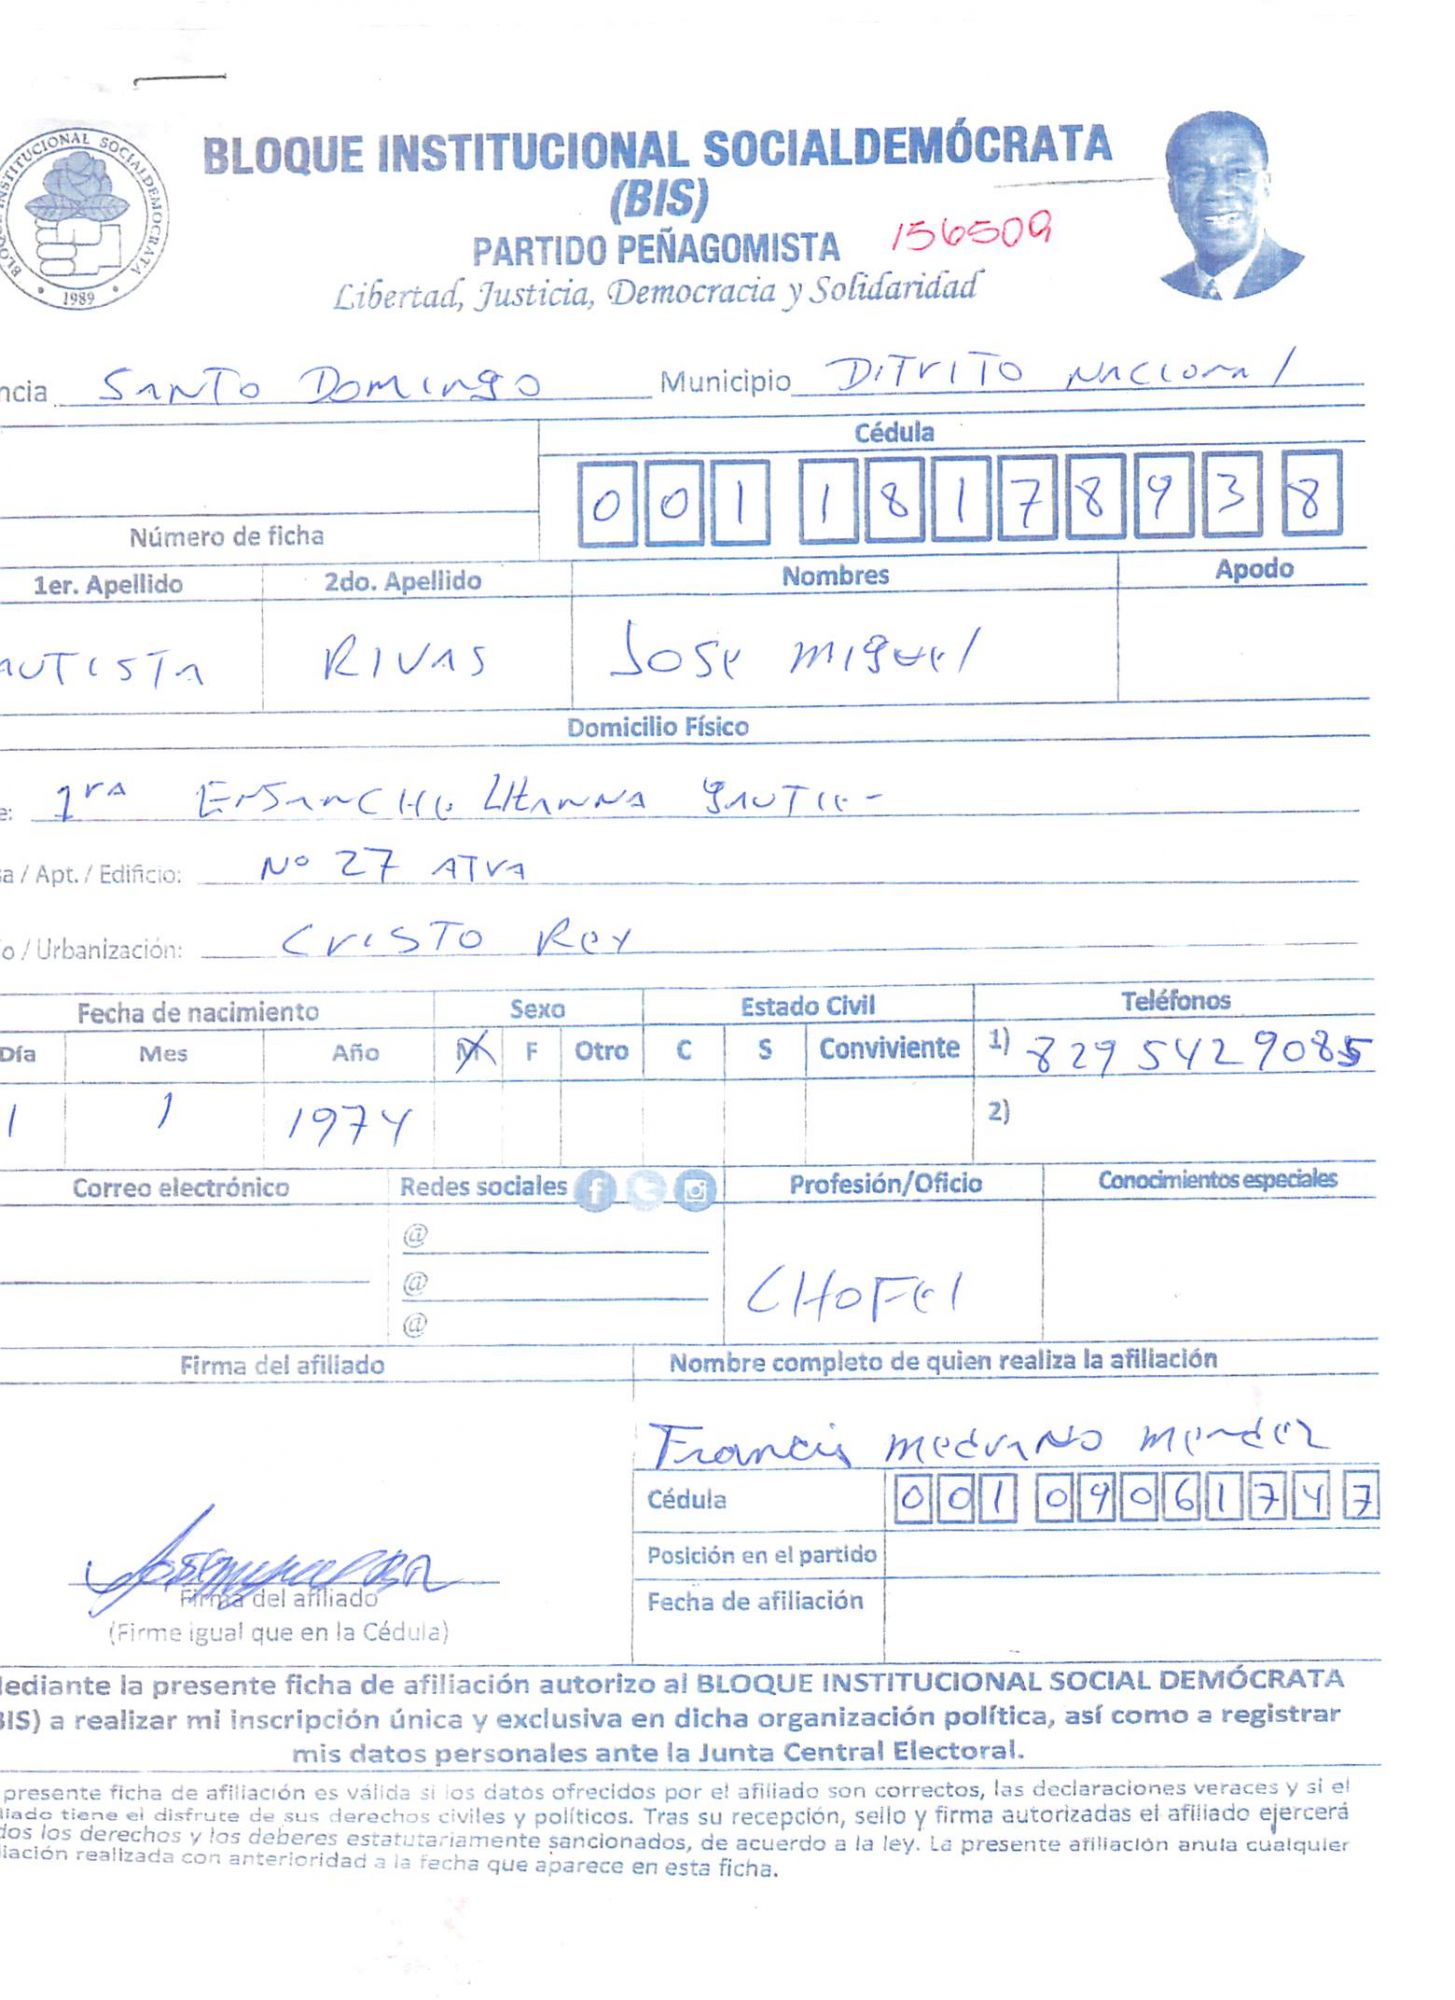 BLOQUE INSTITUCIONAL SOCIALDEMÓCRATA
1989
BLOQUE INSTITUCIONAL SOCIALDEMÓCRATA
(BIS)
PARTIDO PEÑAGOMISTA 156509
Libertad, Justicia, Democracia y Solidaridad
ncia SANTO DOMINGO Municipio DITRITO NACIONAl
Cédula
0 0 1 1 8 1 7 8 9 3 8
Número de ficha
1er. Apellido 2do. Apellido Nombres Apodo
AUTISTA RIVAS JOSE MIGUEl
Domicilio Físico
e: 1RA ENSANCHE
sa / Apt. / Edificio: Nº 27 ATRA
io / Urbanización: CRISTO REY
Fecha de nacimiento Sexo Estado Civil Teléfonos
Día Mes Año M F Otro C S Conviviente 1) 8295429085
1 1 1974 2)
Correo electrónico Redes sociales Profesión/Oficio Conocimientos especiales
@
@
@
CHOFEl
Firma del afiliado Nombre completo de quien realiza la afiliación
Francis Medrano Mendez
Cédula 0 0 1 0 9 0 6 1 7 4 7
Posición en el partido
Firma del afiliado Fecha de afiliación
(Firme igual que en la Cédula)
Mediante la presente ficha de afiliación autorizo al BLOQUE INSTITUCIONAL SOCIAL DEMÓCRATA
BIS) a realizar mi inscripción única y exclusiva en dicha organización política, así como a registrar
mis datos personales ante la Junta Central Electoral.
presente ficha de afiliación es válida si los datos ofrecidos por el afiliado son correctos, las declaraciones veraces y si el
liado tiene el disfrute de sus derechos civiles y políticos. Tras su recepción, sello y firma autorizadas el afiliado ejercerá
dos los derechos y los deberes estatutariamente sancionados, de acuerdo a la ley. La presente afiliación anula cualquier
liación realizada con anterioridad a la fecha que aparece en esta ficha.